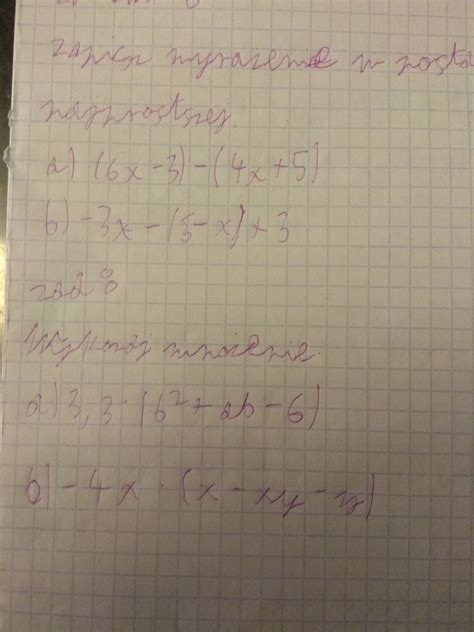 zapisz wyrażenie w posta
najprostszej.
a) (6x-3)-(4x+5)
b) -3x-(5-x)+3
zad 8
Wykonaj mnożenie.
a) 3,3·(b²+ab-6)
b) -4x·(x-xy-y)